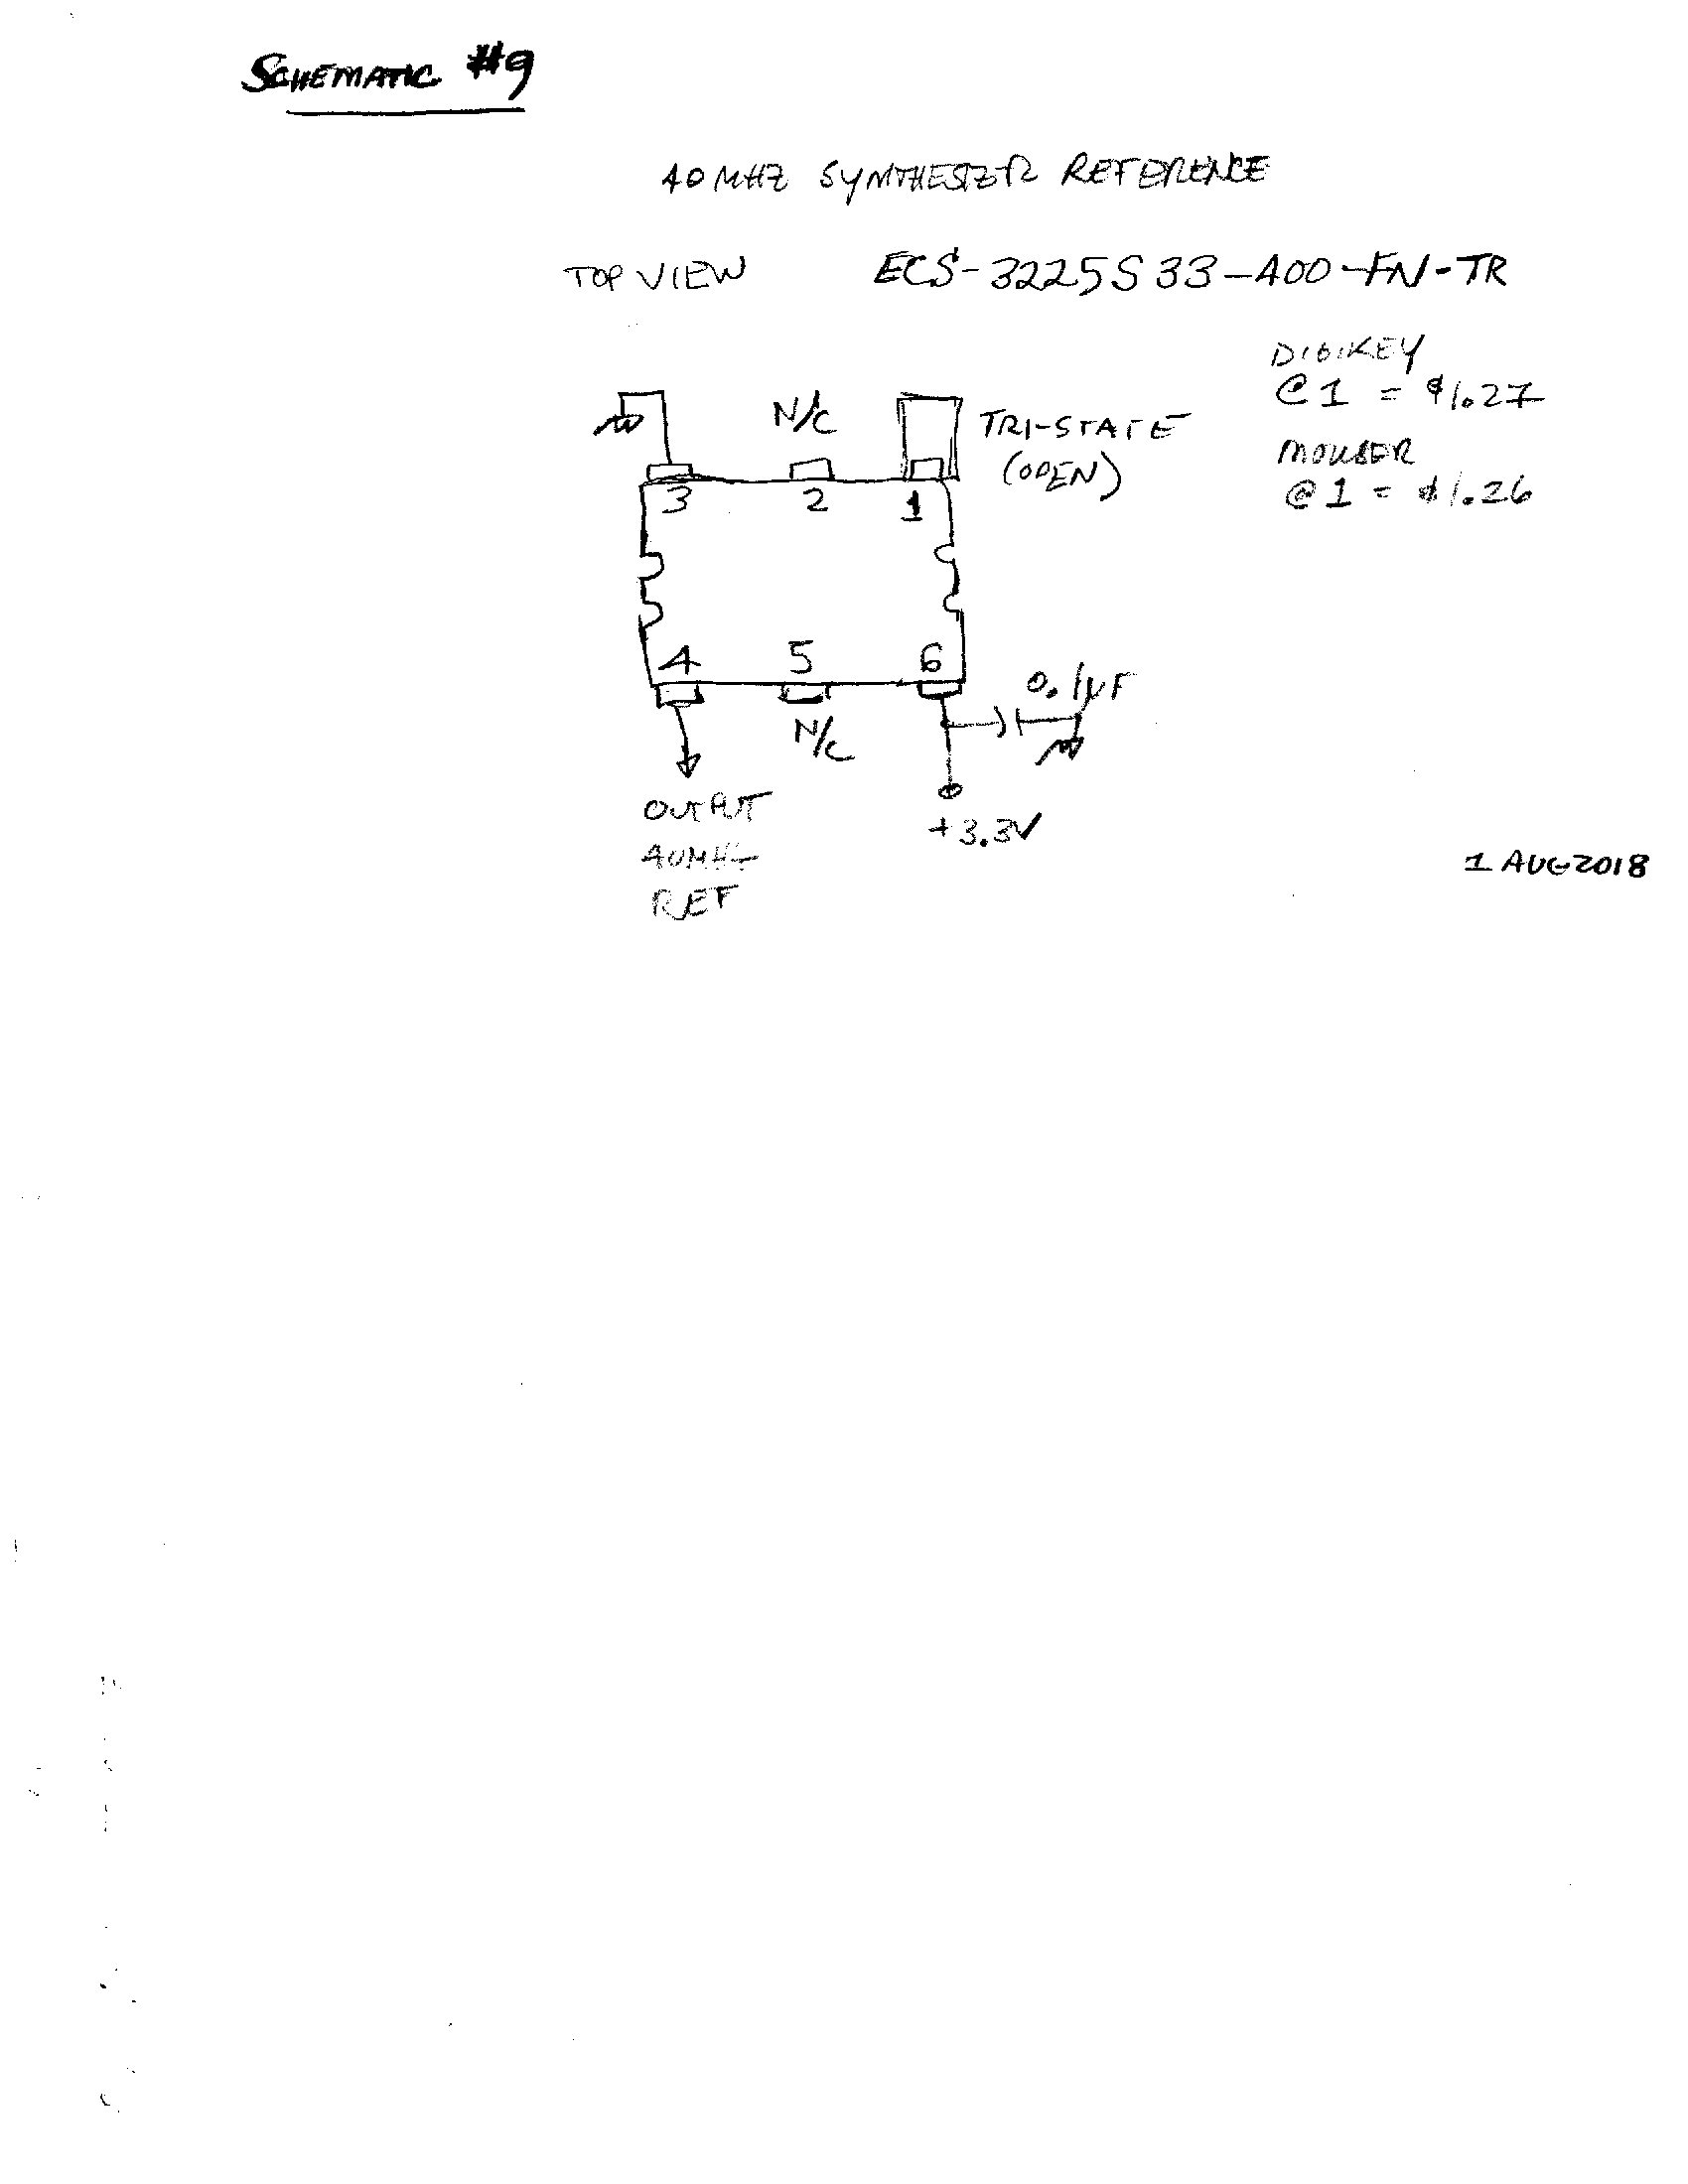 SCHEMATIC #9
40 MHZ SYNTHESIZER REFERENCE
TOP VIEW ECS-3225S33-400-FN-TR
DIGIKEY
@ 1 = $1.27
MOUSER
@ 1 = $1.26
N/C
TRI-STATE
(OPEN)
3 2 1
4 5 6
0.1µF
N/C
OUTPUT
40MHZ
REF
+3.3V
1 AUG 2018